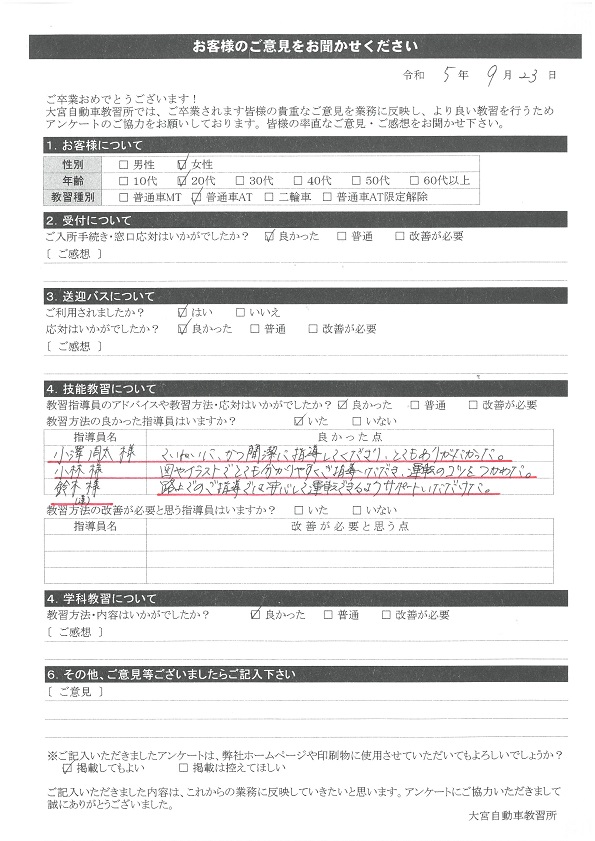 お客様のご意見をお聞かせください
令和 5 年 9 月 23 日
ご卒業おめでとうございます！
大宮自動車教習所では、ご卒業されます皆様の貴重なご意見を業務に反映し、より良い教習を行うため
アンケートのご協力をお願いしております。皆様の率直なご意見・ご感想をお聞かせ下さい。
1. お客様について
性別 □ 男性 ☑ 女性
年齢 □ 10代 ☑ 20代 □ 30代 □ 40代 □ 50代 □ 60代以上
教習種別 □ 普通車MT ☑ 普通車AT □ 二輪車 □ 普通車AT限定解除
2. 受付について
ご入所手続き・窓口応対はいかがでしたか？ ☑ 良かった □ 普通 □ 改善が必要
［ ご感想 ］
3. 送迎バスについて
ご利用されましたか？ ☑ はい □ いいえ
応対はいかがでしたか？ ☑ 良かった □ 普通 □ 改善が必要
［ ご感想 ］
4. 技能教習について
教習指導員のアドバイスや教習方法・応対はいかがでしたか？ ☑ 良かった □ 普通 □ 改善が必要
教習方法の良かった指導員はいますか？ ☑ いた □ いない
指導員名 良かった点
小澤 周太 様 ていねいに、かつ簡潔に指導してくださり、とてもありがたかった。
小林 様 図やイラストでとても分かりやすくご指導いただき、運転のコツをつかめた。
鈴木 様 路上でのご指導では安心して運転できるようサポートいただけた。
教習方法の改善が必要と思う指導員はいますか？ □ いた □ いない
指導員名 改善が必要と思う点
4. 学科教習について
教習方法・内容はいかがでしたか？ ☑ 良かった □ 普通 □ 改善が必要
［ ご感想 ］
6. その他、ご意見等ございましたらご記入下さい
［ ご意見 ］
※ご記入いただきましたアンケートは、弊社ホームページや印刷物に使用させていただいてもよろしいでしょうか？
☑ 掲載してもよい □ 掲載は控えてほしい
ご記入いただきました内容は、これからの業務に反映していきたいと思います。アンケートにご協力いただきまして
誠にありがとうございました。
大宮自動車教習所